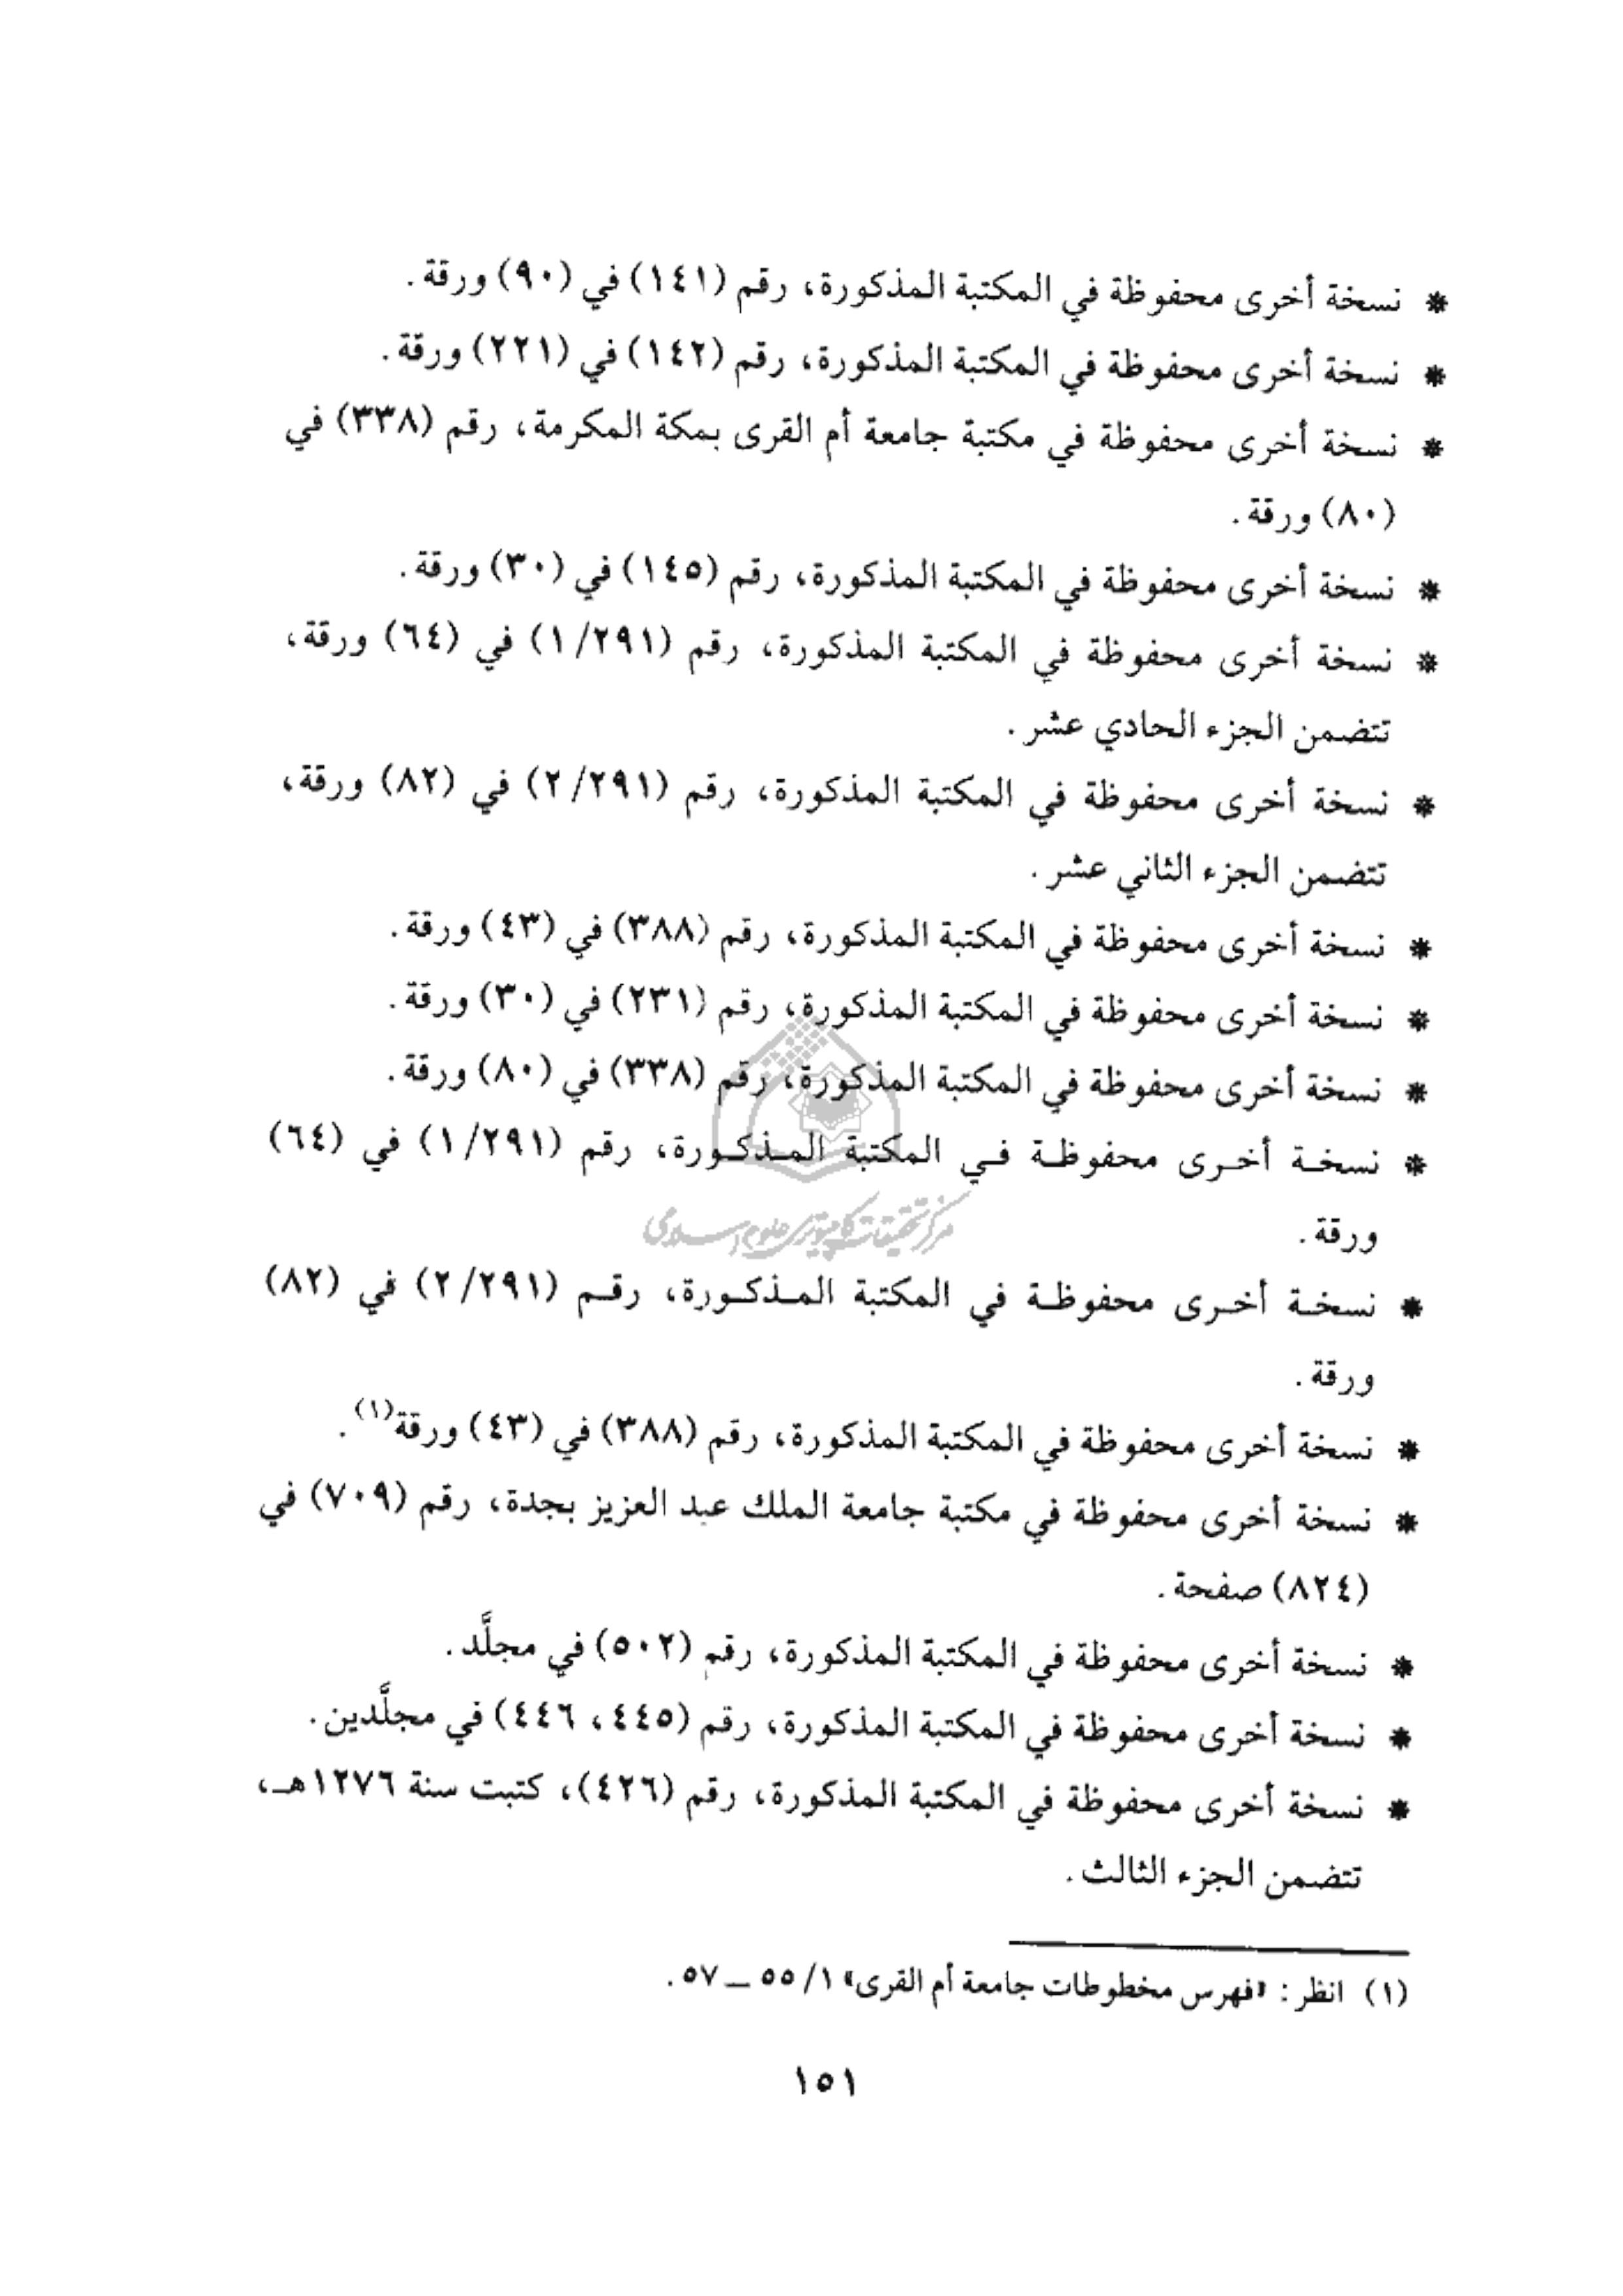 * نسخة أخرى محفوظة في المكتبة المذكورة، رقم (١٤١) في (٩٠) ورقة.
* نسخة أخرى محفوظة في المكتبة المذكورة، رقم (١٤٢) في (٢٢١) ورقة.
* نسخة أخرى محفوظة في مكتبة جامعة أم القرى بمكة المكرمة، رقم (٣٣٨) في
(٨٠) ورقة.
* نسخة أخرى محفوظة في المكتبة المذكورة، رقم (١٤٥) في (٣٠) ورقة.
* نسخة أخرى محفوظة في المكتبة المذكورة، رقم (١/٢٩١) في (٦٤) ورقة،
تتضمن الجزء الحادي عشر.
* نسخة أخرى محفوظة في المكتبة المذكورة، رقم (٢/٢٩١) في (٨٢) ورقة،
تتضمن الجزء الثاني عشر.
* نسخة أخرى محفوظة في المكتبة المذكورة، رقم (٣٨٨) في (٤٣) ورقة.
* نسخة أخرى محفوظة في المكتبة المذكورة، رقم (٢٣١) في (٣٠) ورقة.
* نسخة أخرى محفوظة في المكتبة المذكورة، رقم (٣٣٨) في (٨٠) ورقة.
* نسخـة أخـرى محفوظـة فـي المكتبة المـذكـورة، رقم (١/٢٩١) في (٦٤)
مركز تحقيقات كامپيوترى علوم اسلامى
ورقة.
* نسخـة أخـرى محفوظـة في المكتبة المـذكـورة، رقـم (٢/٢٩١) في (٨٢)
ورقة.
* نسخة أخرى محفوظة في المكتبة المذكورة، رقم (٣٨٨) في (٤٣) ورقة(١).
* نسخة أخرى محفوظة في مكتبة جامعة الملك عبد العزيز بجدة، رقم (٧٠٩) في
(٨٢٤) صفحة.
* نسخة أخرى محفوظة في المكتبة المذكورة، رقم (٥٠٢) في مجلَّد.
* نسخة أخرى محفوظة في المكتبة المذكورة، رقم (٤٤٥، ٤٤٦) في مجلَّدين.
* نسخة أخرى محفوظة في المكتبة المذكورة، رقم (٤٢٦)، كتبت سنة ١٢٧٦هـ،
تتضمن الجزء الثالث.
(١) انظر: «فهرس مخطوطات جامعة أم القرى» ١/ ٥٥ ــ ٥٧.
١٥١